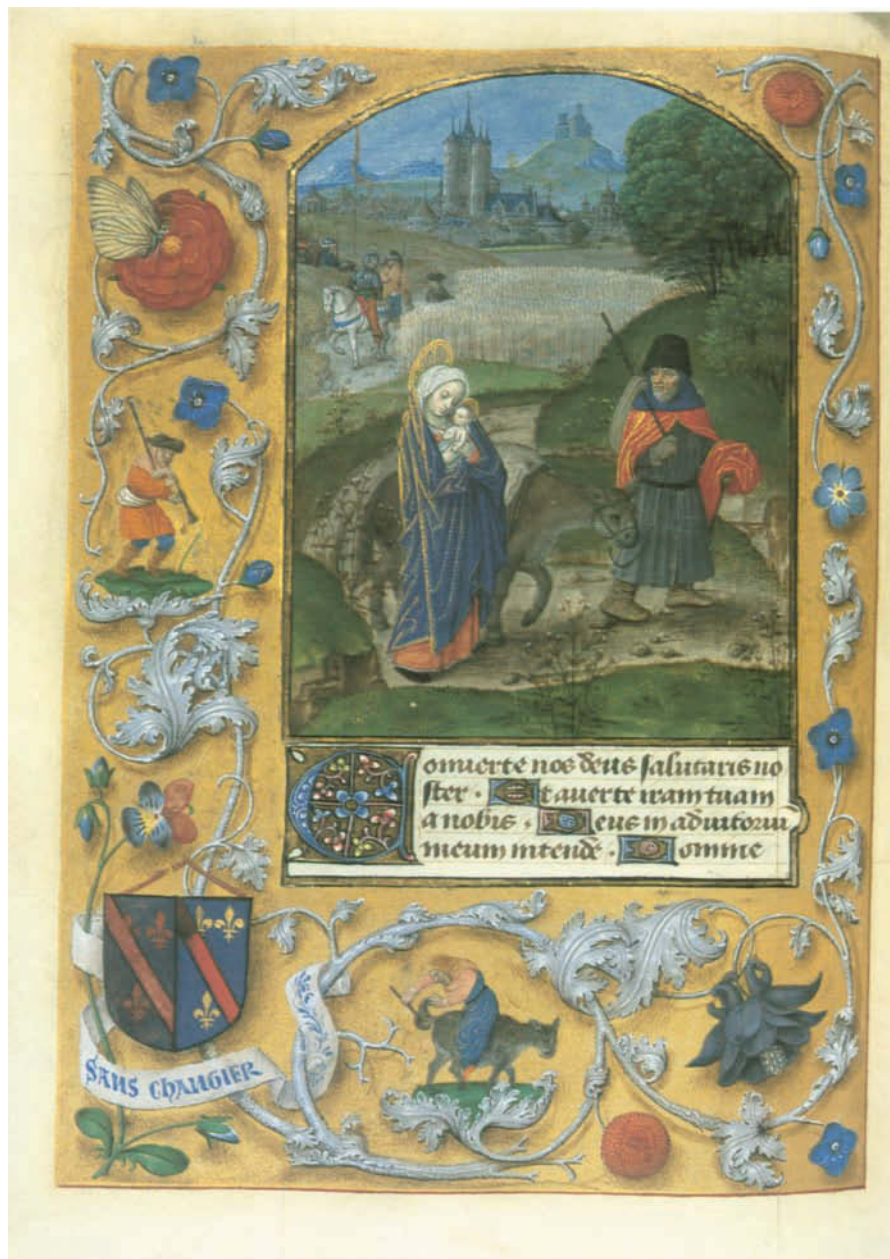 Conuerte nos deus salutaris no
ster . Et auerte iram tuam
a nobis . Deus in adiutoriu
meum intende . Domine
SANS CHANGIER